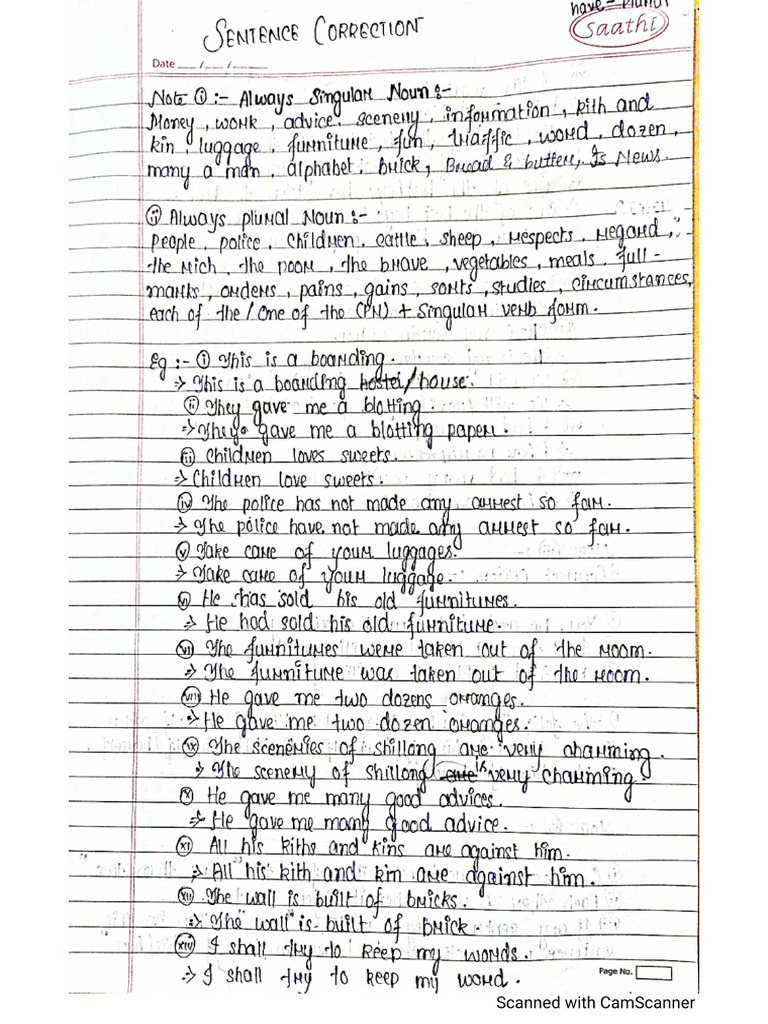 have - Plural
SENTENCE CORRECTION
Saathi
Date ___ / ___ / ___
Note ① :- Always Singular Noun :-
Money, work, advice scenery, information, kith and
kin, luggage, furniture, fun, traffic, word, dozen,
many a man, alphabet, brick, Bread & butter, Is News.
ⓘⓘ Always plural Noun :-
People, police, Children, cattle, sheep, respects, regard,
the rich, the poor, the brave, vegetables, meals, full-
marks, orders, pains, gains, sorts, studies, circumstances,
each of the / One of the (PN) + Singular verb form.
Eg :- (i) This is a boarding.
→ This is a boarding hostel/house.
(ii) They gave me a blotting.
→ They gave me a blotting paper.
(iii) Children loves sweets.
→ Children love sweets.
(iv) The police has not made any arrest so far.
→ The police have not made any arrest so far.
(v) Take care of your luggages.
→ Take care of your luggage.
(vi) He has sold his old furnitures.
→ He had sold his old furniture.
(vii) The furnitures were taken out of the room.
→ The furniture was taken out of the room.
(viii) He gave me two dozens oranges.
→ He gave me two dozen oranges.
(ix) The sceneries of shillong are very charming.
→ The scenery of shillong are is very charming.
(x) He gave me many good advices.
→ He gave me many good advice.
(xi) All his kiths and kins are against him.
→ All his kith and kin are against him.
(xii) The wall is built of bricks.
→ The wall is built of brick.
(xiv) I shall try to keep my words.
→ I shall try to keep my word.
Page No.
Scanned with CamScanner